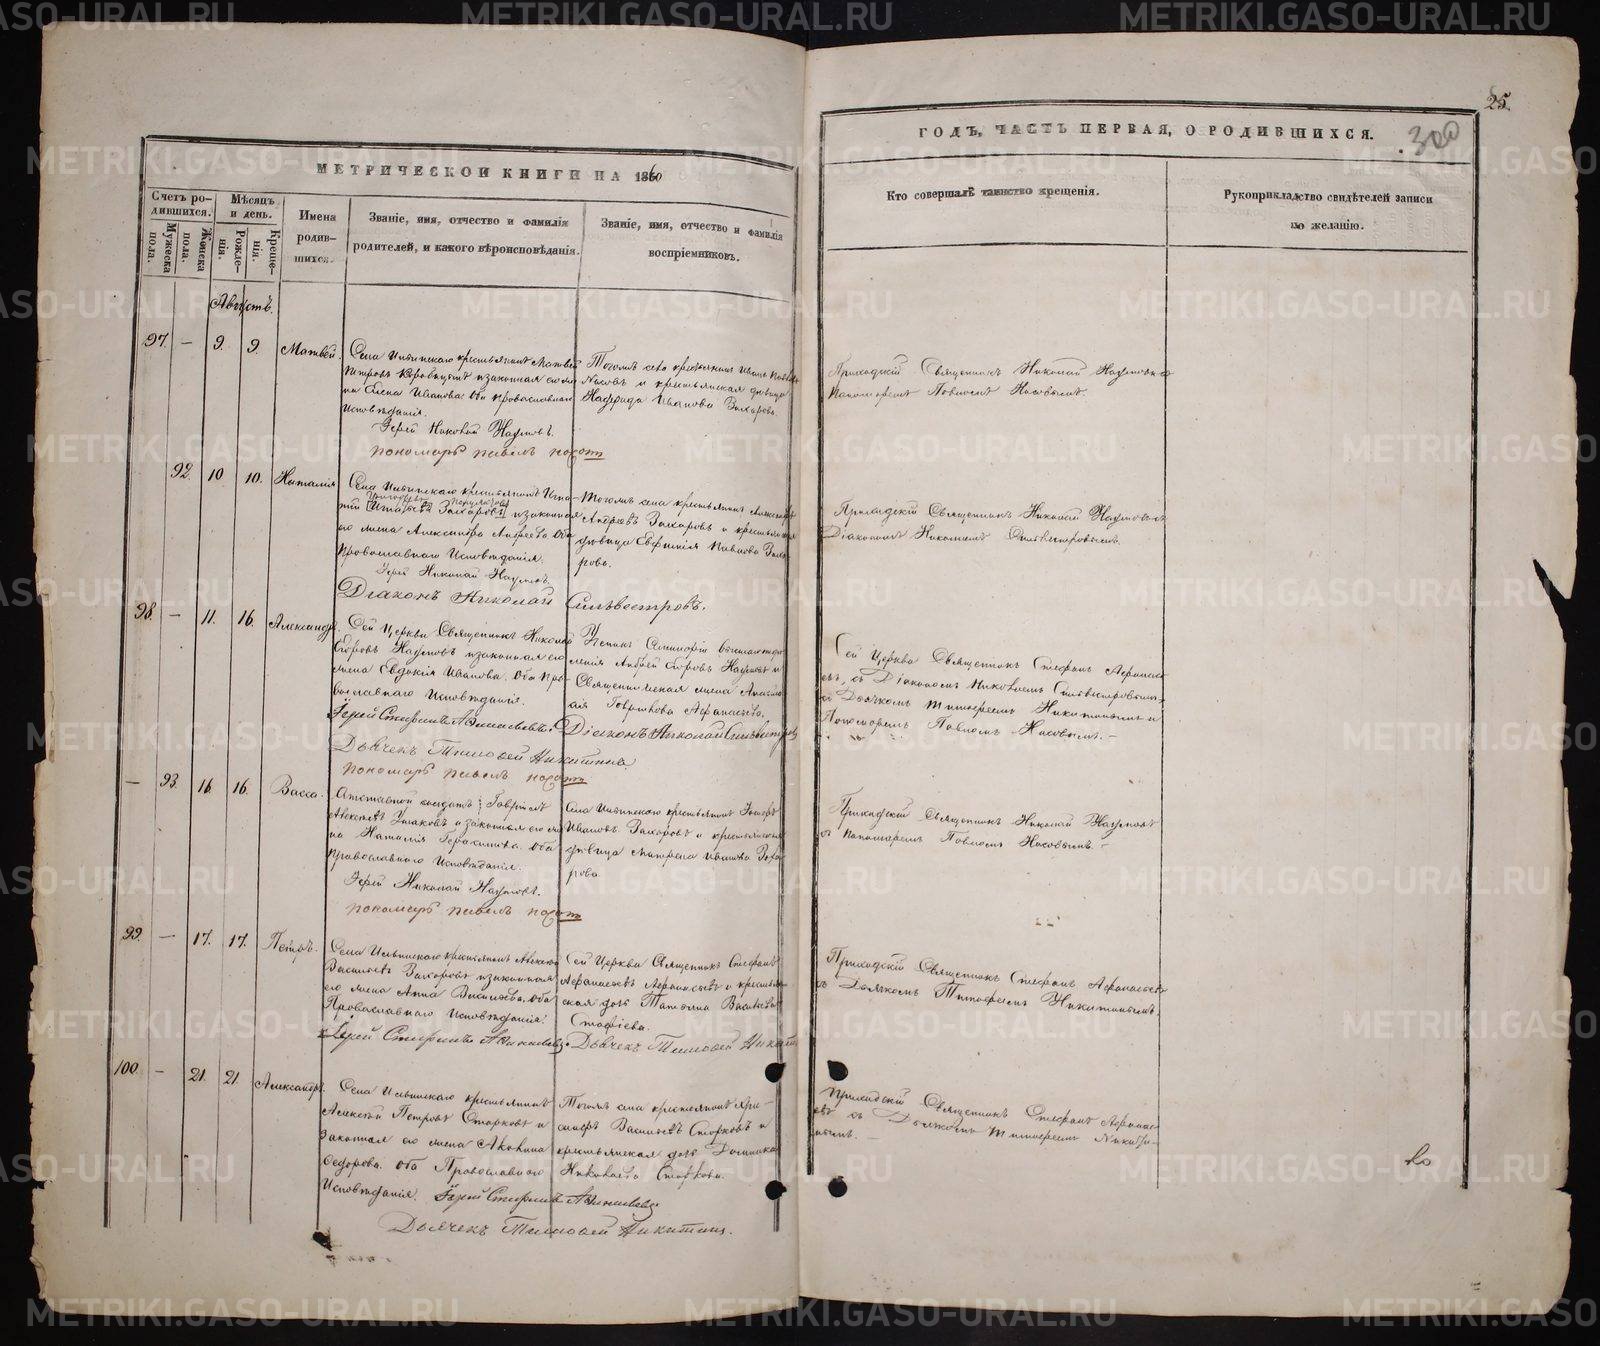 25.
300
МЕТРИЧЕСКОЙ КНИГИ НА 1860
ГОДЪ, ЧАСТЬ ПЕРВАЯ, О РОДИВШИХСЯ.
Счетъ ро-
дившихся.
Мужеска
пола.
Женска
пола.
Мѣсяцъ
и день.
Рожде-
нія.
Креще-
нія.
Имена
родив-
шихся.
Званіе, имя, отчество и фамилія
родителей, и какого вѣроисповѣданія.
Званіе, имя, отчество и фамилія
воспріемниковъ.
Кто совершалъ таинство крещенія.
Рукоприкладство свидѣтелей записи
по желанію.
Августъ.
97. – 9. 9. Матвей.
Села Ильинскаго крестьянинъ Матвей
Петровъ и законная его же-
на Елена Иванова. Оба православнаго
исповѣданія.
Іерей Николай Наумовъ.
пономарь павелъ
Тогожъ села крестьянинъ Иванъ
и крестьянская дѣвица
Иванова Захарова.
Приходскій Священникъ Николай Наумовъ с
Пономаремъ Павломъ Носовымъ.
92. 10 10. Наталія
Села Ильинскаго крестьянинъ Игна-
тій Захаровъ и законная
его жена Александра Андреева. Оба
Православнаго Исповѣданія.
Іерей Николай Наумовъ.
Діаконъ Николай Сильвестровъ.
Тогожъ села крестьянинъ Александръ
Андреевъ Захаровъ и крестьянская
дѣвица Евфимія Павлова Заха-
рова.
Приходскій Священникъ Николай Наумовъ съ
Діакономъ Николаемъ Сильвестровымъ.
98. – 11. 16. Александръ.
Сей Церкви Священникъ Николай
Егоровъ Наумовъ и законная его
жена Евдокія Иванова. Оба Пра-
вославнаго Исповѣданія.
Іерей Стефанъ Афанасьевъ.
Діаконъ Николай Сильвестровъ
Дьячекъ Тимофей Никитинъ.
пономарь павелъ
Ученикъ Семинаріи высшаго отдѣ-
ленія Андрей Егоровъ Наумовъ и
Священническая жена Анастас-
ія Гаврилова Афанасьева.
Сей Церкви Священникъ Стефанъ Афанась-
евъ, съ Діакономъ Николаемъ Сильвестровымъ,
Дьячкомъ Тимофеемъ Никитинымъ и
Пономаремъ Павломъ Носовымъ. –
– 93. 16. 16. Васса.
Отставной солдатъ Гаврилъ
Алексѣевъ Ушаковъ и законная его же-
на Наталія Герасимова. Оба
Православнаго Исповѣданія.
Іерей Николай Наумовъ.
пономарь павелъ
Села Ильинскаго крестьянинъ
Ивановъ Захаровъ и крестьянская
дѣвица Матрена Иванова Заха-
рова.
Приходскій Священникъ Николай Наумовъ
съ Пономаремъ Павломъ Носовымъ. –
99. – 17. 17. Петръ.
Села Ильинскаго крестьянинъ Алексѣй
Васильевъ Захаровъ и законная
его жена Анна Васильева. Оба
Православнаго Исповѣданія.
Іерей Стефанъ Афанасьевъ.
Дьячекъ Тимофей Никитинъ
Сей Церкви Священникъ Стефанъ
Афанасьевъ Афанасьевъ и крестьян-
ская дочь Татьяна Васильева
Приходскій Священникъ Стефанъ Афанасьевъ
съ Дьячкомъ Тимофеемъ Никитинымъ.
100. – 21. 21. Александръ.
Села Ильинскаго крестьянинъ
Алексѣй Петровъ Старковъ и
законная его жена Акилина
Федорова. Оба Православнаго
Исповѣданія.
Іерей Стефанъ Афанасьевъ.
Дьячекъ Тимофей Никитинъ.
Тогожъ села крестьянинъ
Васильевъ Старковъ и
крестьянская дочь Домника
Николаева Старкова.
Приходскій Священникъ Стефанъ Афанась-
евъ съ Дьячкомъ Тимофеемъ Никити-
нымъ. –
METRIKI.GASO-URAL.RU